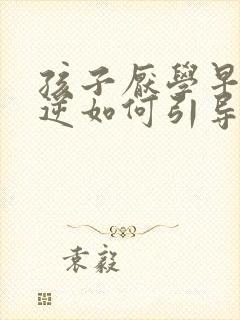 孩子厭學早
逆如何引导
袁毅